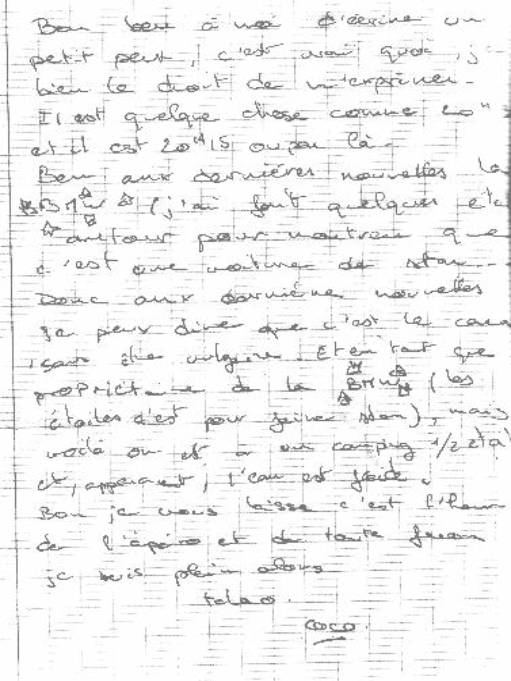 Bon ben à moi d'écrire un
petit peut, c'est vrai quoi, j
bien le droit de m'exprimer.
Il est quelque chose comme 20H
et il est 20H15 ou par là.
Ben aux dernières nouvelles la
BMW (j'ai fait quelques éto
autour pour montrer que
c'est une voiture de star...
Donc aux dernière nouvelles
je peux dire que c'est le cara
sans être vulgaire. Et en tant que
propriétaire de la BMW (les
étoiles c'est pour faire star), mais
voilà on est a un camping 1/2 étoi
et, apparament, l'eau est froide.
Bon je vous laisse c'est l'heur
de l'apéro et de toute facon
je suis plein alors
tchao.
coco.